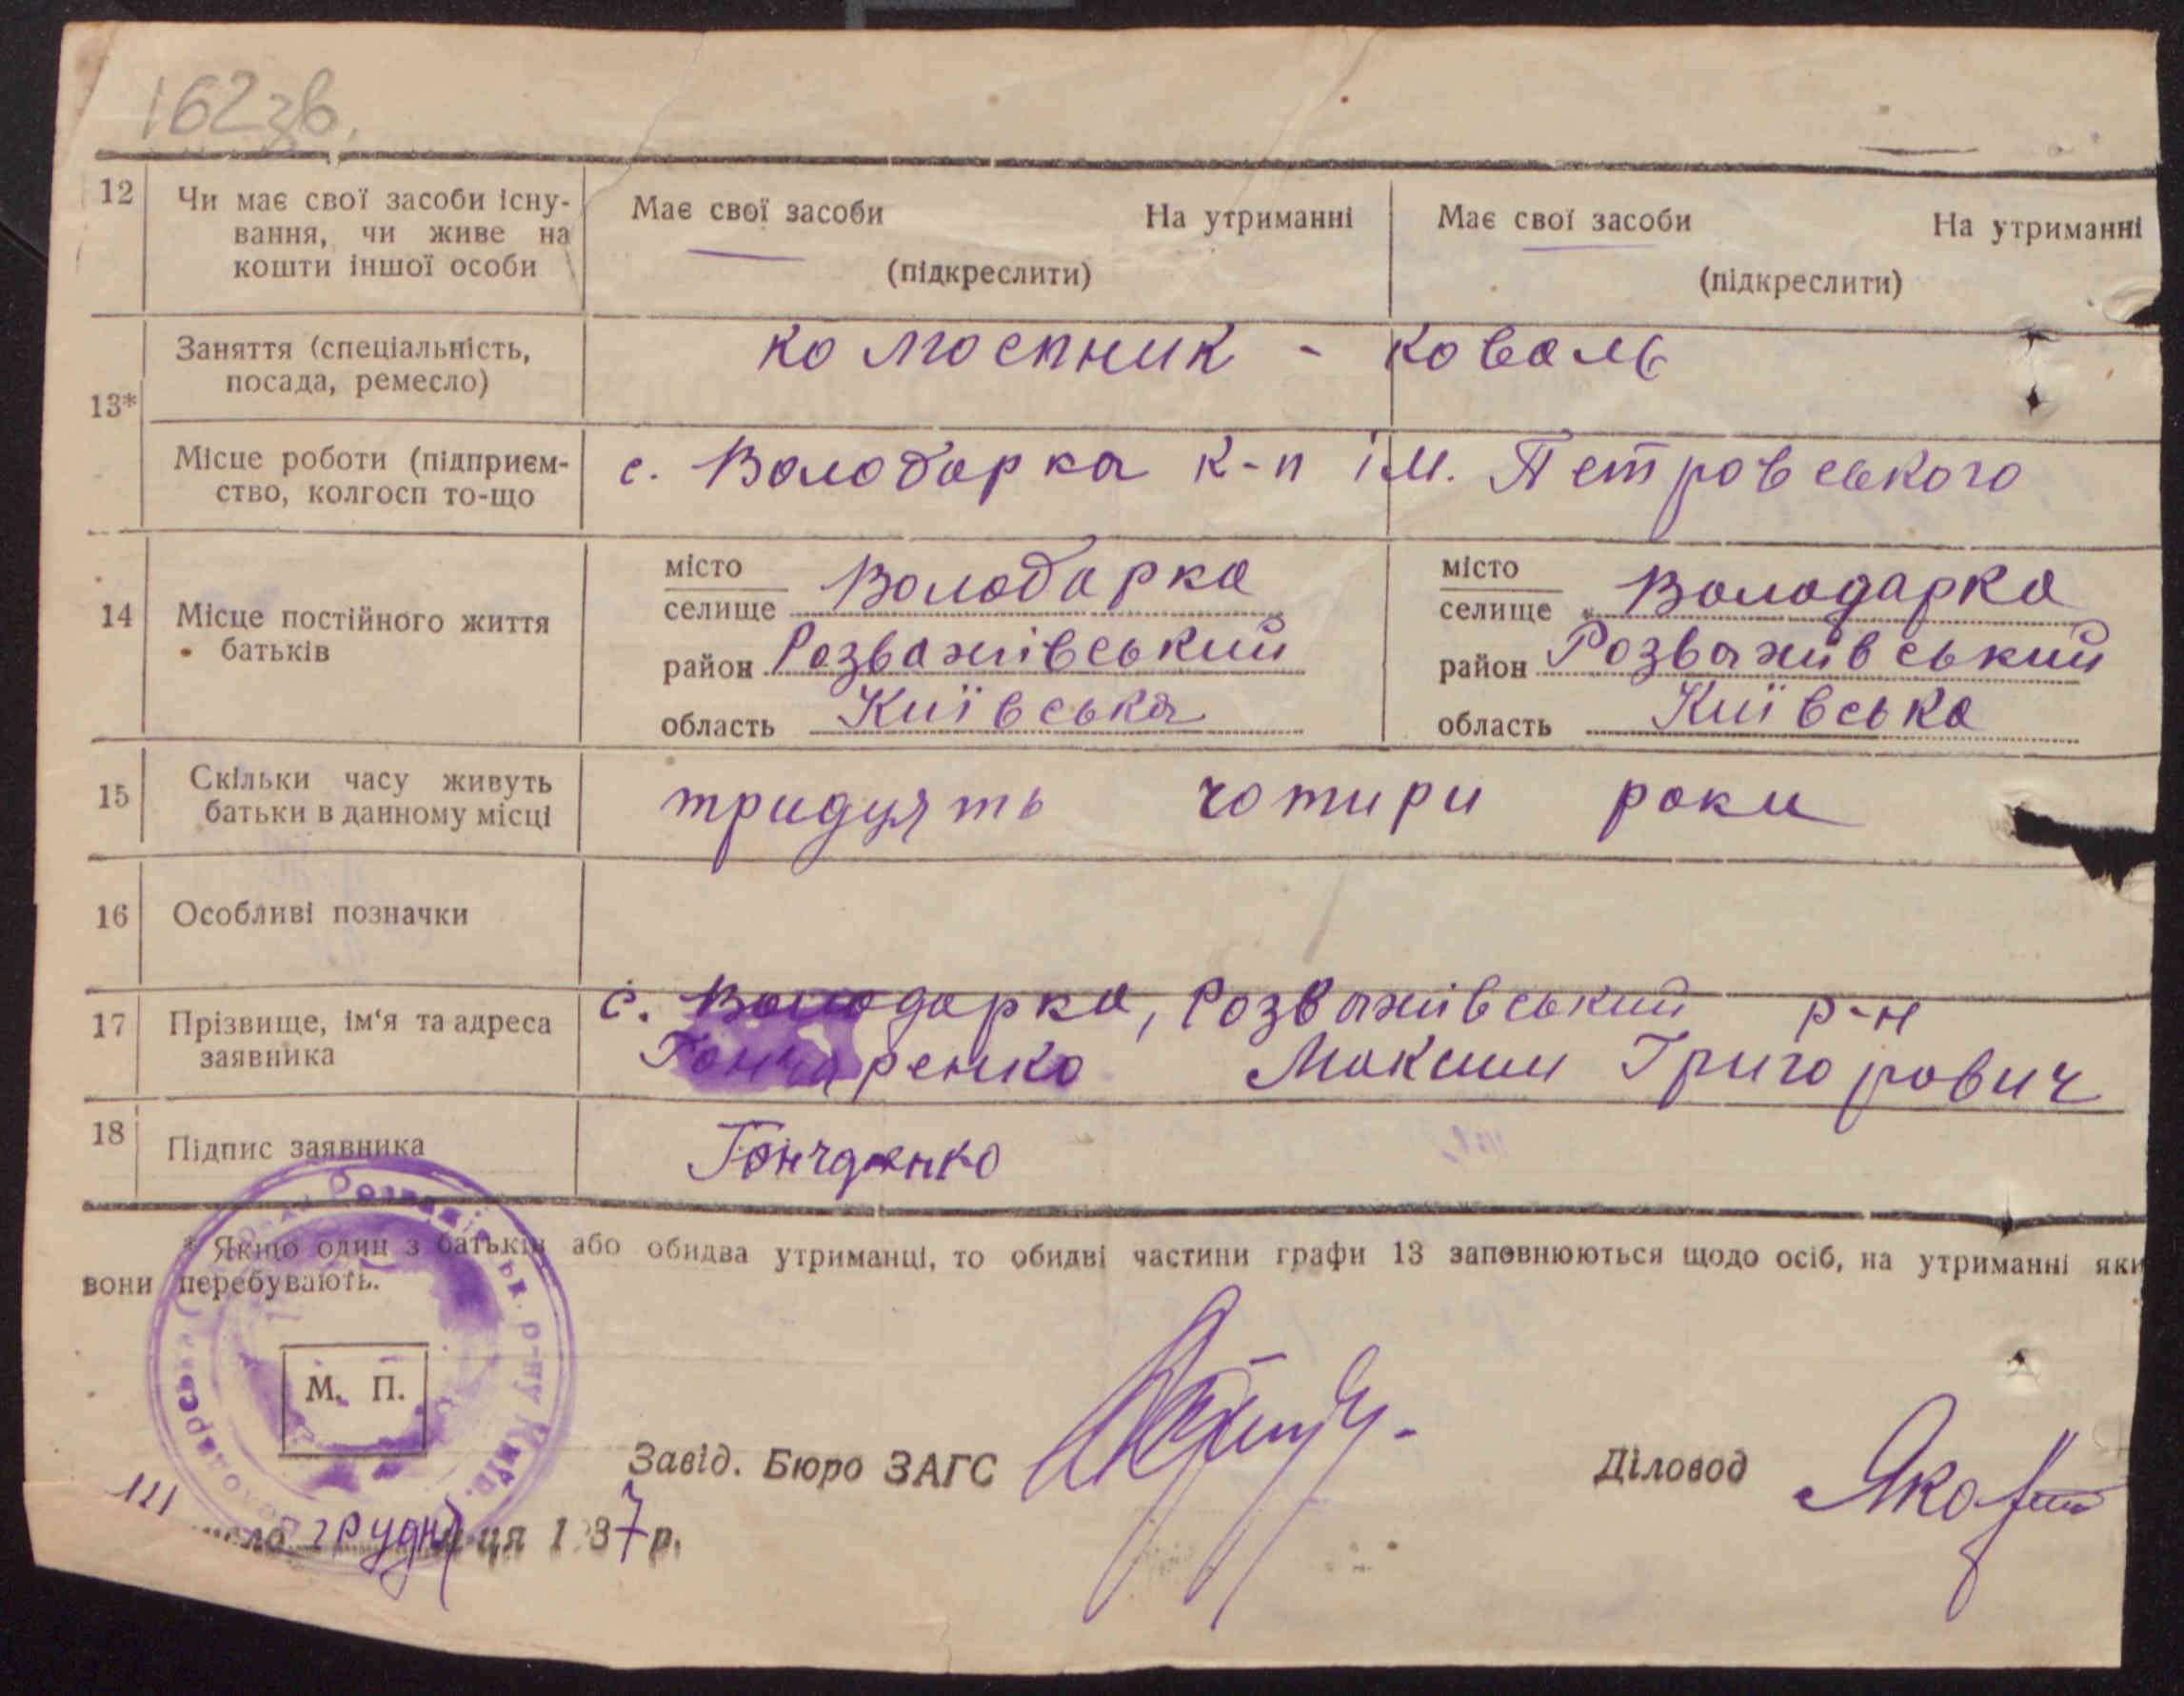 162зв.
12 Чи має свої засоби існу- Має свої засоби На утриманні Має свої засоби На утриманні
вання, чи живе на
кошти іншої особи (підкреслити) (підкреслити)
13* Заняття (спеціальність, колгоспник - коваль
посада, ремесло)
Місце роботи (підприєм- с. Володарка к-п ім. Петровського
ство, колгосп то-що
14 Місце постійного життя батьків
місто
селище Володарка
район Розважівський
область Київська
місто
селище Володарка
район Розважівський
область Київська
15 Скільки часу живуть тридцять чотири роки
батьки в данному місці
16 Особливі позначки
17 Прізвище, ім'я та адреса с. Володарка, Розважівський р-н
заявника Гончаренко Максим Григорович
18 Підпис заявника Гончаренко
* Якщо один з батьків або обидва утриманці, то обидві частини графи 13 заповнюються щодо осіб, на утриманні яки
вони перебувають.
М. П.
Завід. Бюро ЗАГС
Діловод
грудня 1937 р.